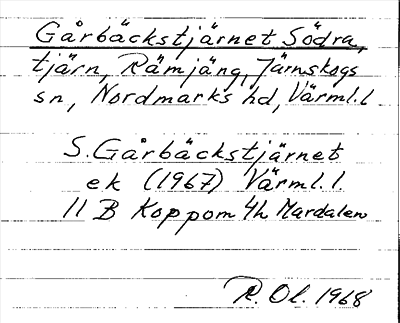 Gårbäckstjärnet Södra,
tjärn, Rämjäng, Järnskogs
sn, Nordmarks hd, Värml. l
S. Gårbäckstjärnet
ek (1967) Värml. l.
11 B Koppom 4h Mardalen
R. Ol. 1968